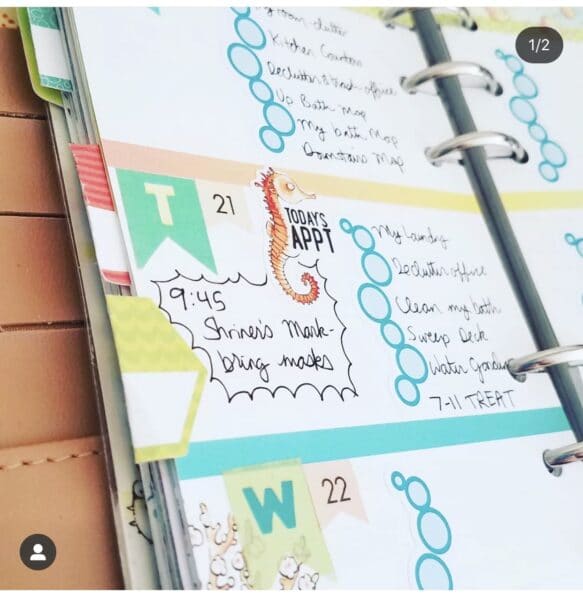 1/2
my room clutter
Kitchen Counters
Declutter &
office
Up Bath Mop
My bath Mop
Downstairs Mop
T
21
TODAY'S
APPT
9:45
Shriner's Mark-
bring masks
My Laundry
Declutter office
Clean my bath
Sweep Deck
Water Garden
7-11 TREAT
W
22